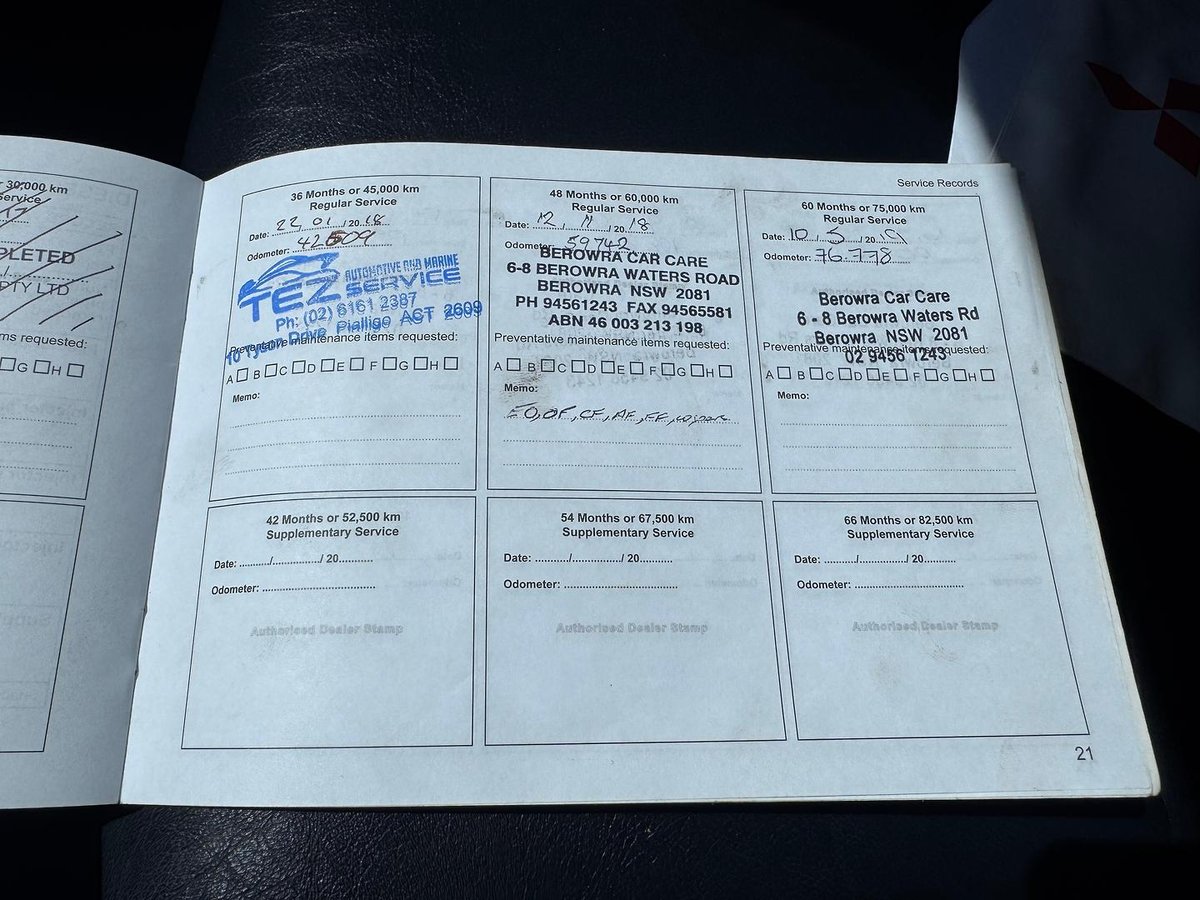 30,000 km
Service
PLETED
PTY LTD
ms requested:
G H
Service Records
36 Months or 45,000 km
Regular Service
Date: 22 / 01 / 20 18
Odometer: 42509
TEZ AUTOMOTIVE AND MARINE
SERVICE
Ph: (02) 6161 2387
10 Tyson Drive Pialligo ACT 2609
Preventative maintenance items requested:
A B C D E F G H
Memo:
48 Months or 60,000 km
Regular Service
Date: 12 / 11 / 20 18
Odometer: 59742
BEROWRA CAR CARE
6-8 BEROWRA WATERS ROAD
BEROWRA NSW 2081
PH 94561243 FAX 94565581
ABN 46 003 213 198
Preventative maintenance items requested:
A B C D E F G H
Memo:
EO, OF, CF, AF, FF,
60 Months or 75,000 km
Regular Service
Date: 10 / 5 / 20 19
Odometer: 76.778
Berowra Car Care
6 - 8 Berowra Waters Rd
Berowra NSW 2081
02 9456 1243
Preventative maintenance items requested:
A B C D E F G H
Memo:
42 Months or 52,500 km
Supplementary Service
Date: ........../............../ 20..........
Odometer: ..............................
Authorised Dealer Stamp
54 Months or 67,500 km
Supplementary Service
Date: ........../............../ 20..........
Odometer: ..............................
Authorised Dealer Stamp
66 Months or 82,500 km
Supplementary Service
Date: ........../............../ 20..........
Odometer: ..............................
Authorised Dealer Stamp
21